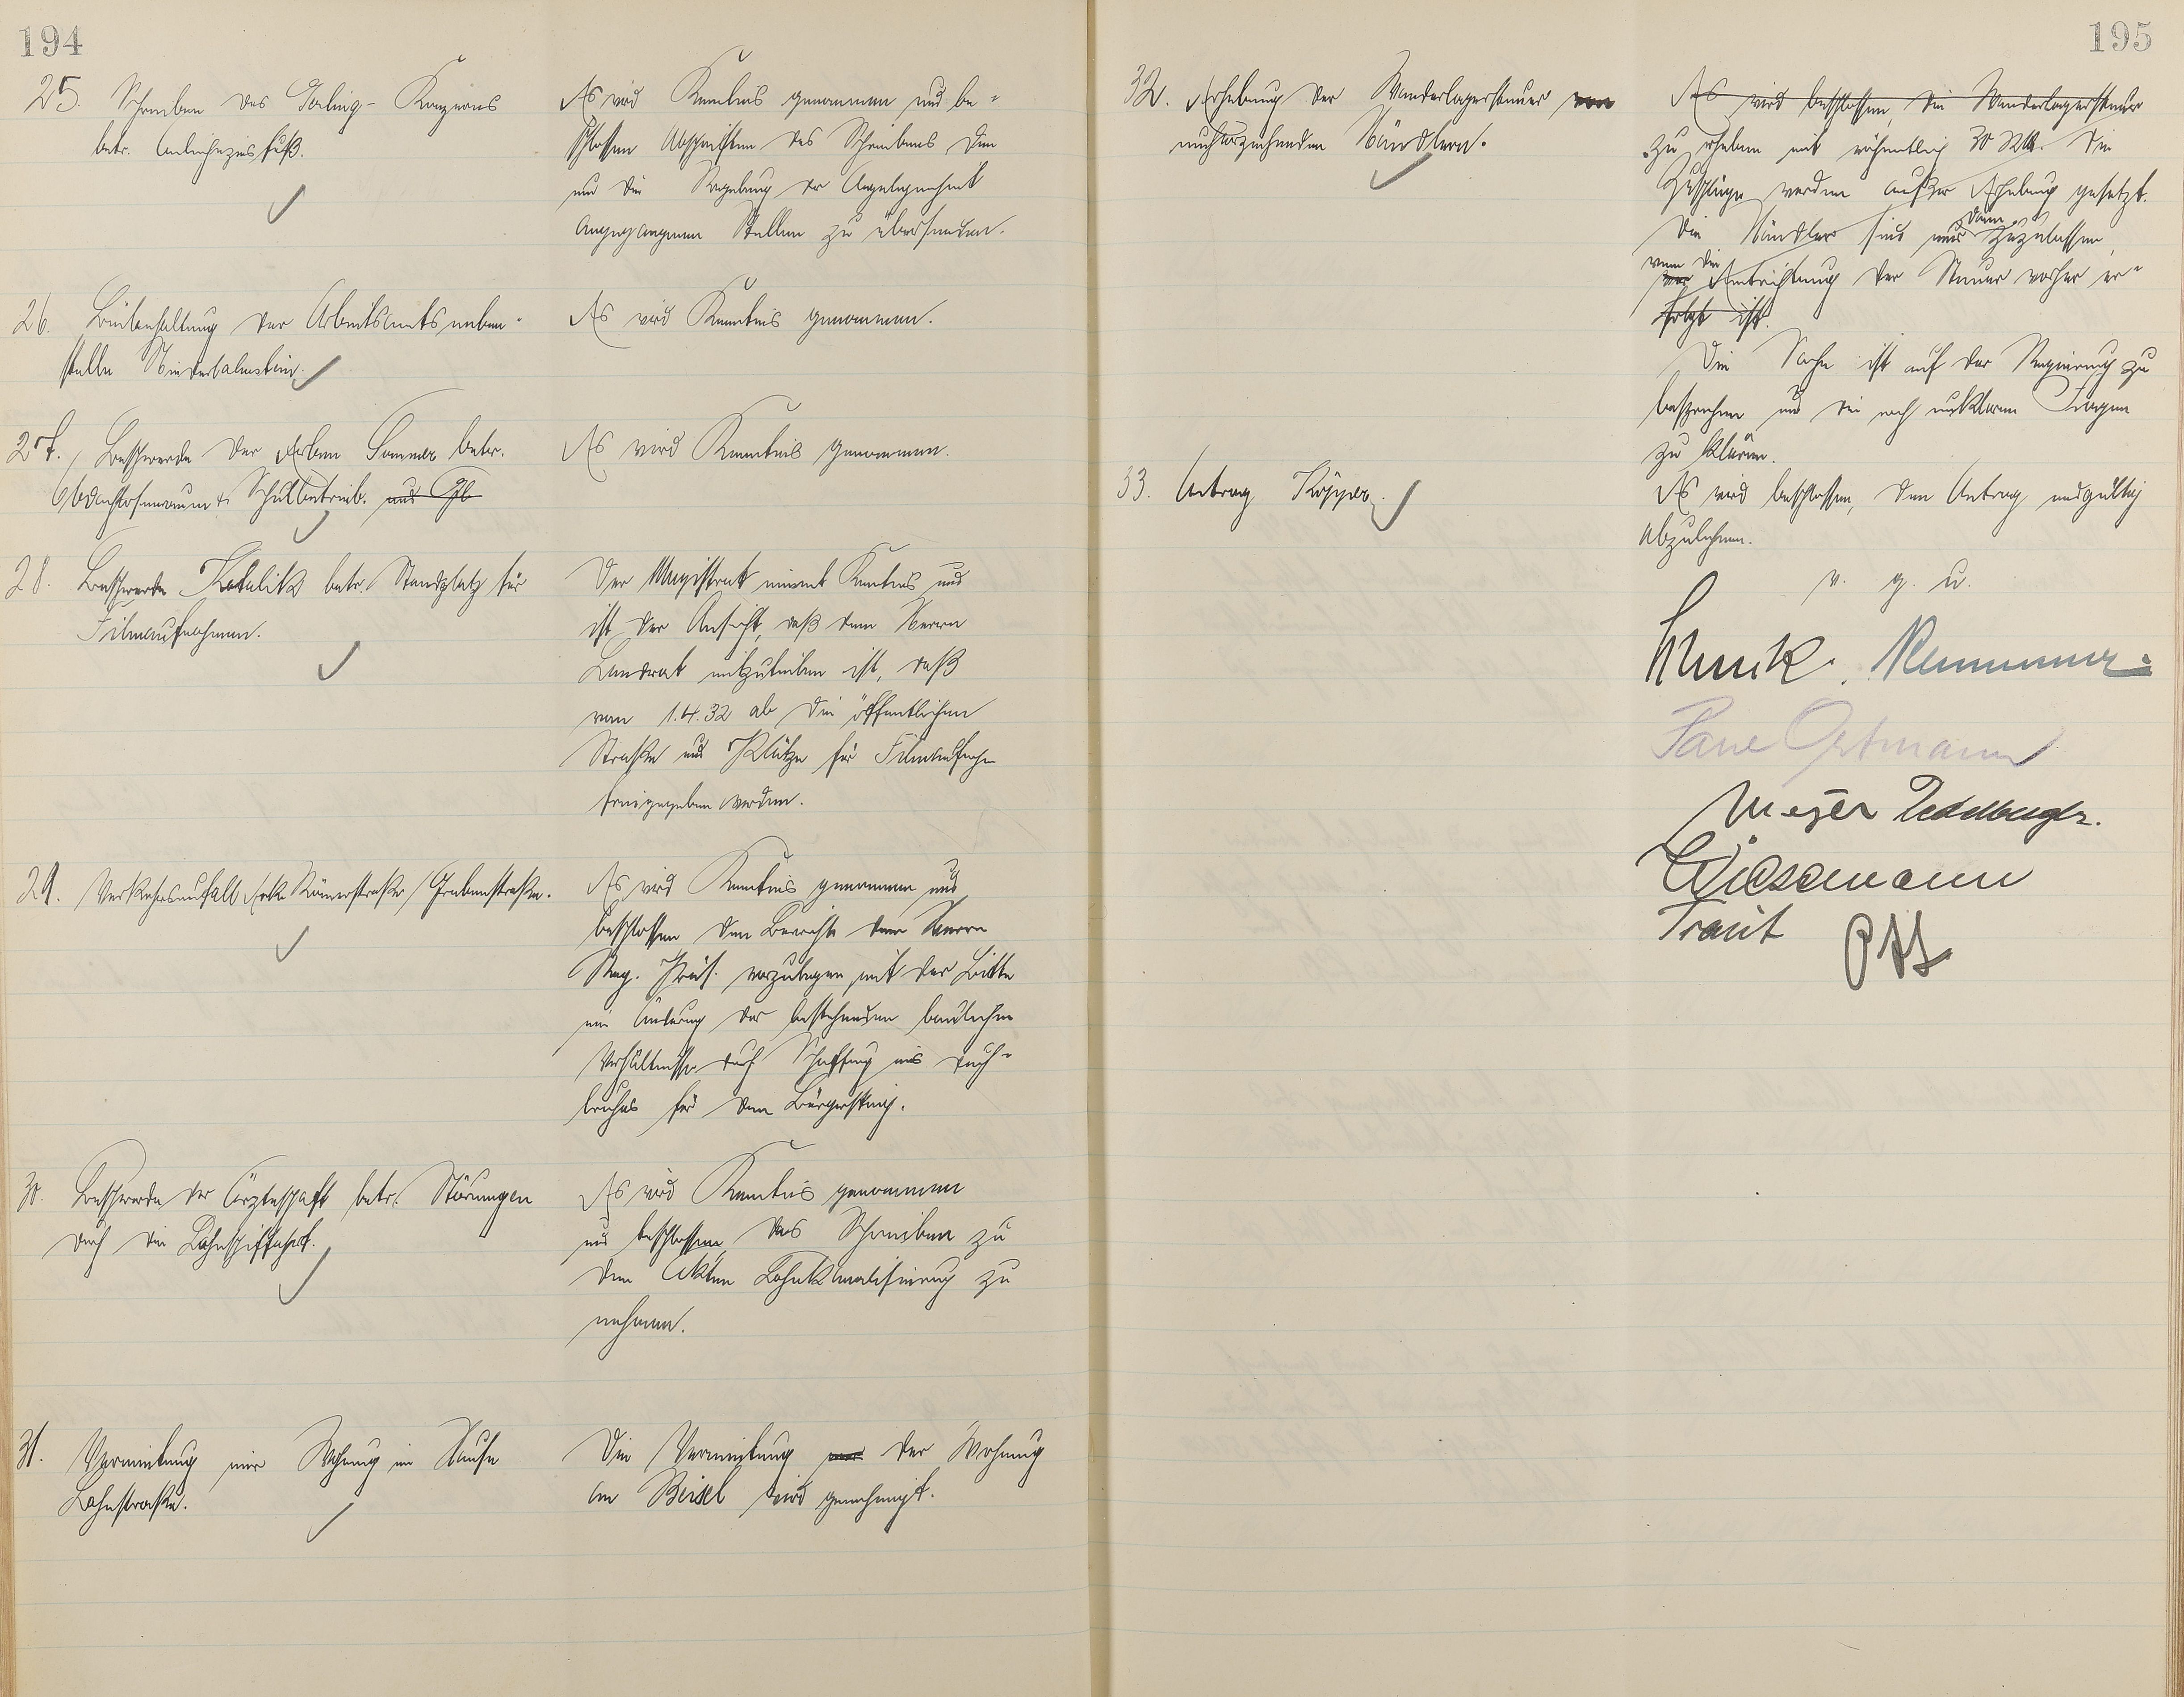 194
25. Schreiben des Gerling-Konzerns
betr. Anleihezinsfuß.
Es wird Kenntnis genommen und be-
schlossen Abschriften des Schreibens den
um die Regelung der Angelegenheit
angegangenen Stellen zu übersenden.
26. Beibehaltung der Arbeitsamtsneben-
stelle Niederlahnstein.
Es wird Kenntnis genommen.
27. Beschwerde der Erben Sommer betr.
Obdachlosenraum & Schulbetrieb. und
Es wird Kenntnis genommen.
28. Beschwerde betr. Standplatz für
Filmaufnahmen.
Der Magistrat nimmt Kenntnis und
ist der Ansicht, daß dem Herrn
Landrat mitzuteilen ist, daß
vom 1.4.32 ab die öffentlichen
Straßen und Plätze für Filmaufnahm
freigegeben werden.
29. Verkehrsunfall Ecke Römerstraße/Grabenstraße.
Es wird Kenntnis genommen und
beschlossen den Bericht dem Herrn
Reg. Präs. vorzulegen mit der Bitte
um Änderung der bestehenden baulichen
Verhältnisse durch Schaffung eines Durch-
bruches für den Bürgersteig.
30. Beschwerde der Ärzteschaft betr. Störungen
durch die Lahnschiffahrt.
Es wird Kenntnis genommen
und beschlossen das Schreiben zu
den Akten Lahnkanalisierung zu
nehmen.
31. Vermietung einer Wohnung im Hause
Lahnstraße.
Die Vermietung der Wohnung
an Beisel wird genehmigt.
195
32. Erhebung der Wanderlagersteuer von
umherziehenden Händlern.
Es wird beschlossen, die Wanderlagersteuer
zu erheben mit wöchentlich 30 RM. Die
Zuschläge werden außer Erhebung gesetzt.
Die Händler sind nur dann zuzulassen
wenn die Entrichtung der Steuer vorher er-
folgt ist.
Die Sache ist auf der Regierung zu
besprechen und die noch unklaren Fragen
zu klären.
33. Antrag Köpper.
Es wird beschlossen, den Antrag endgültig
abzulehnen.
v. g. u.
Ortmann
Meyer
Wiessmann
Traut